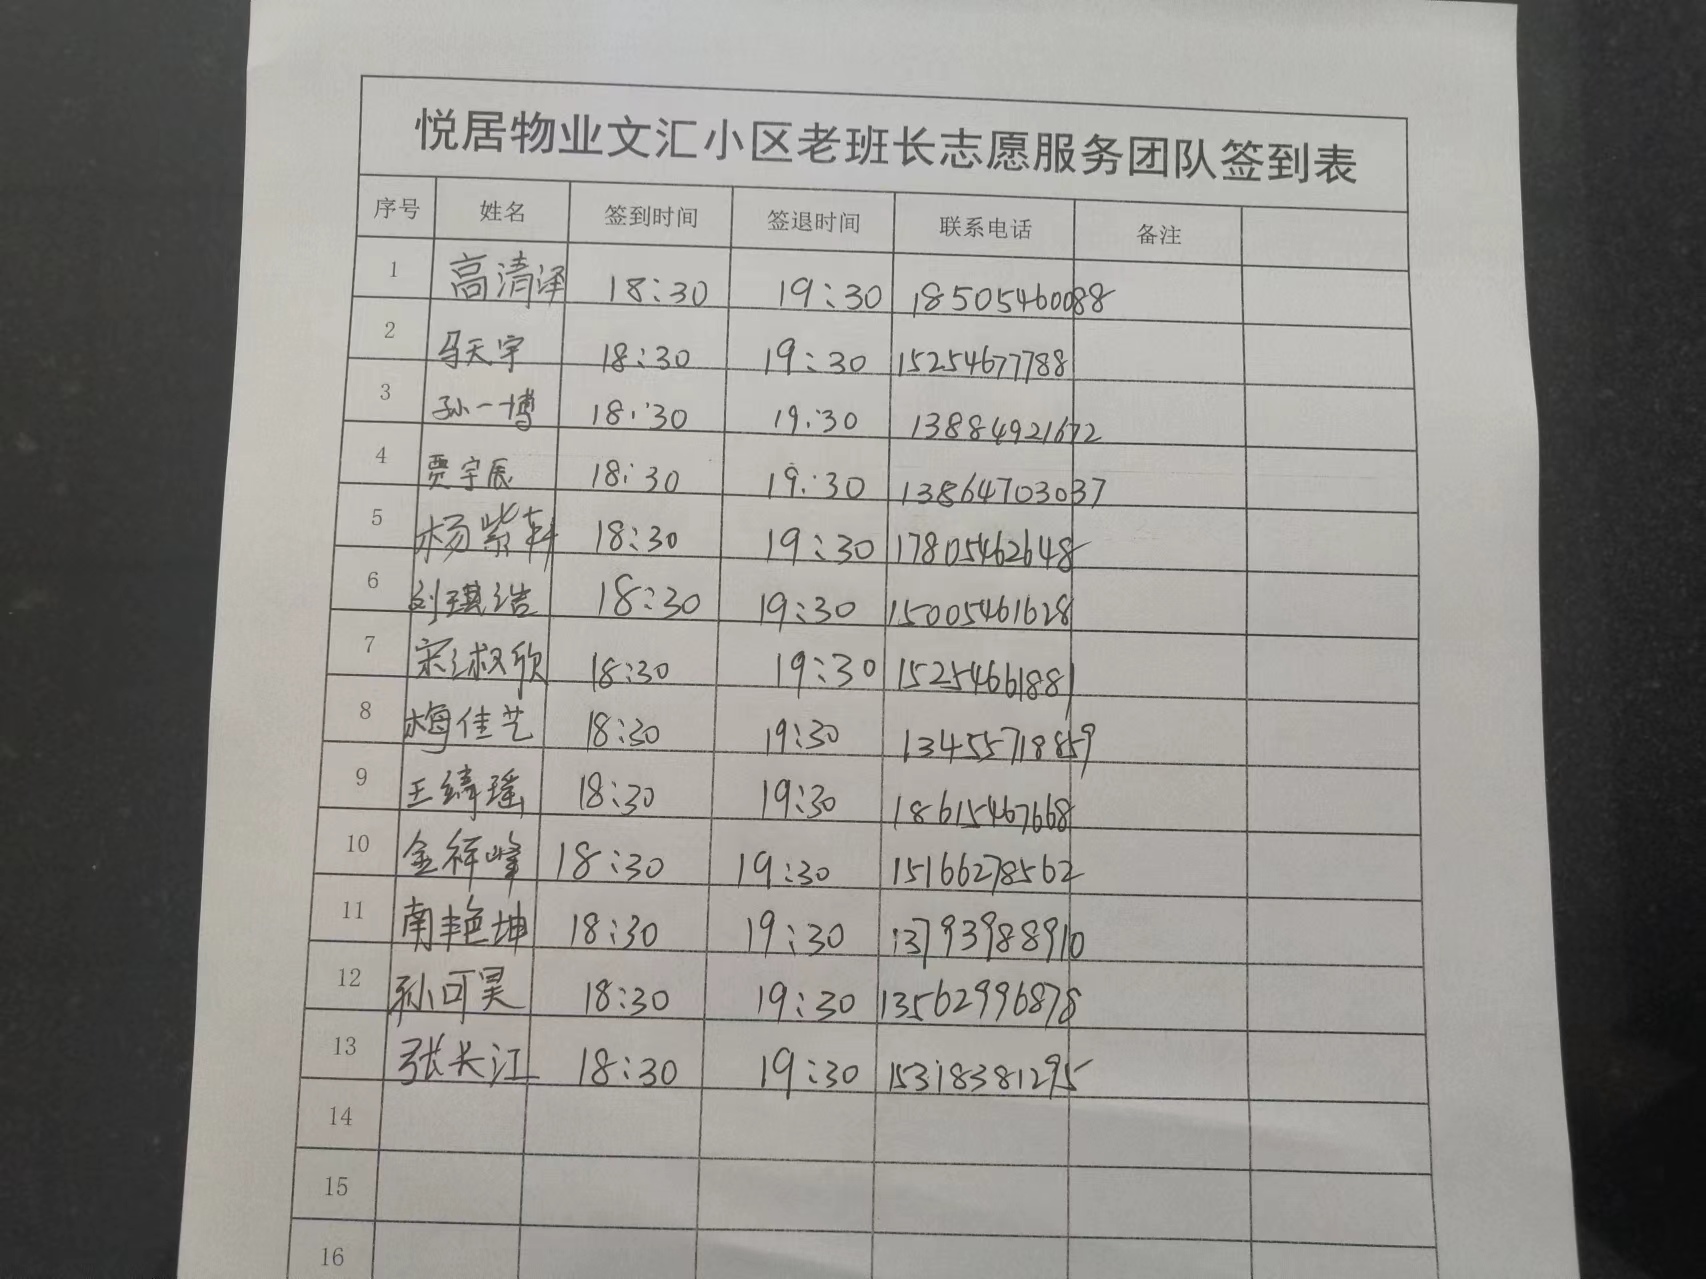 悦居物业文汇小区老班长志愿服务团队签到表
序号 姓名 签到时间 签退时间 联系电话 备注
1 高清泽 18:30 19:30 18505460088
2 马天宇 18:30 19:30 15254677788
3 孙一博 18:30 19:30 13884921672
4 贾宇辰 18:30 19:30 13864703037
5 杨紫轩 18:30 19:30 17805462648
6 刘琪浩 18:30 19:30 15005461628
7 宋淑欣 18:30 19:30 15254661881
8 梅佳艺 18:30 19:30 13455718859
9 王绮瑶 18:30 19:30 18615467668
10 金祥峰 18:30 19:30 15166278562
11 南艳坤 18:30 19:30 13793988910
12 孙可昊 18:30 19:30 13562996878
13 张长江 18:30 19:30 15318381295
14
15
16